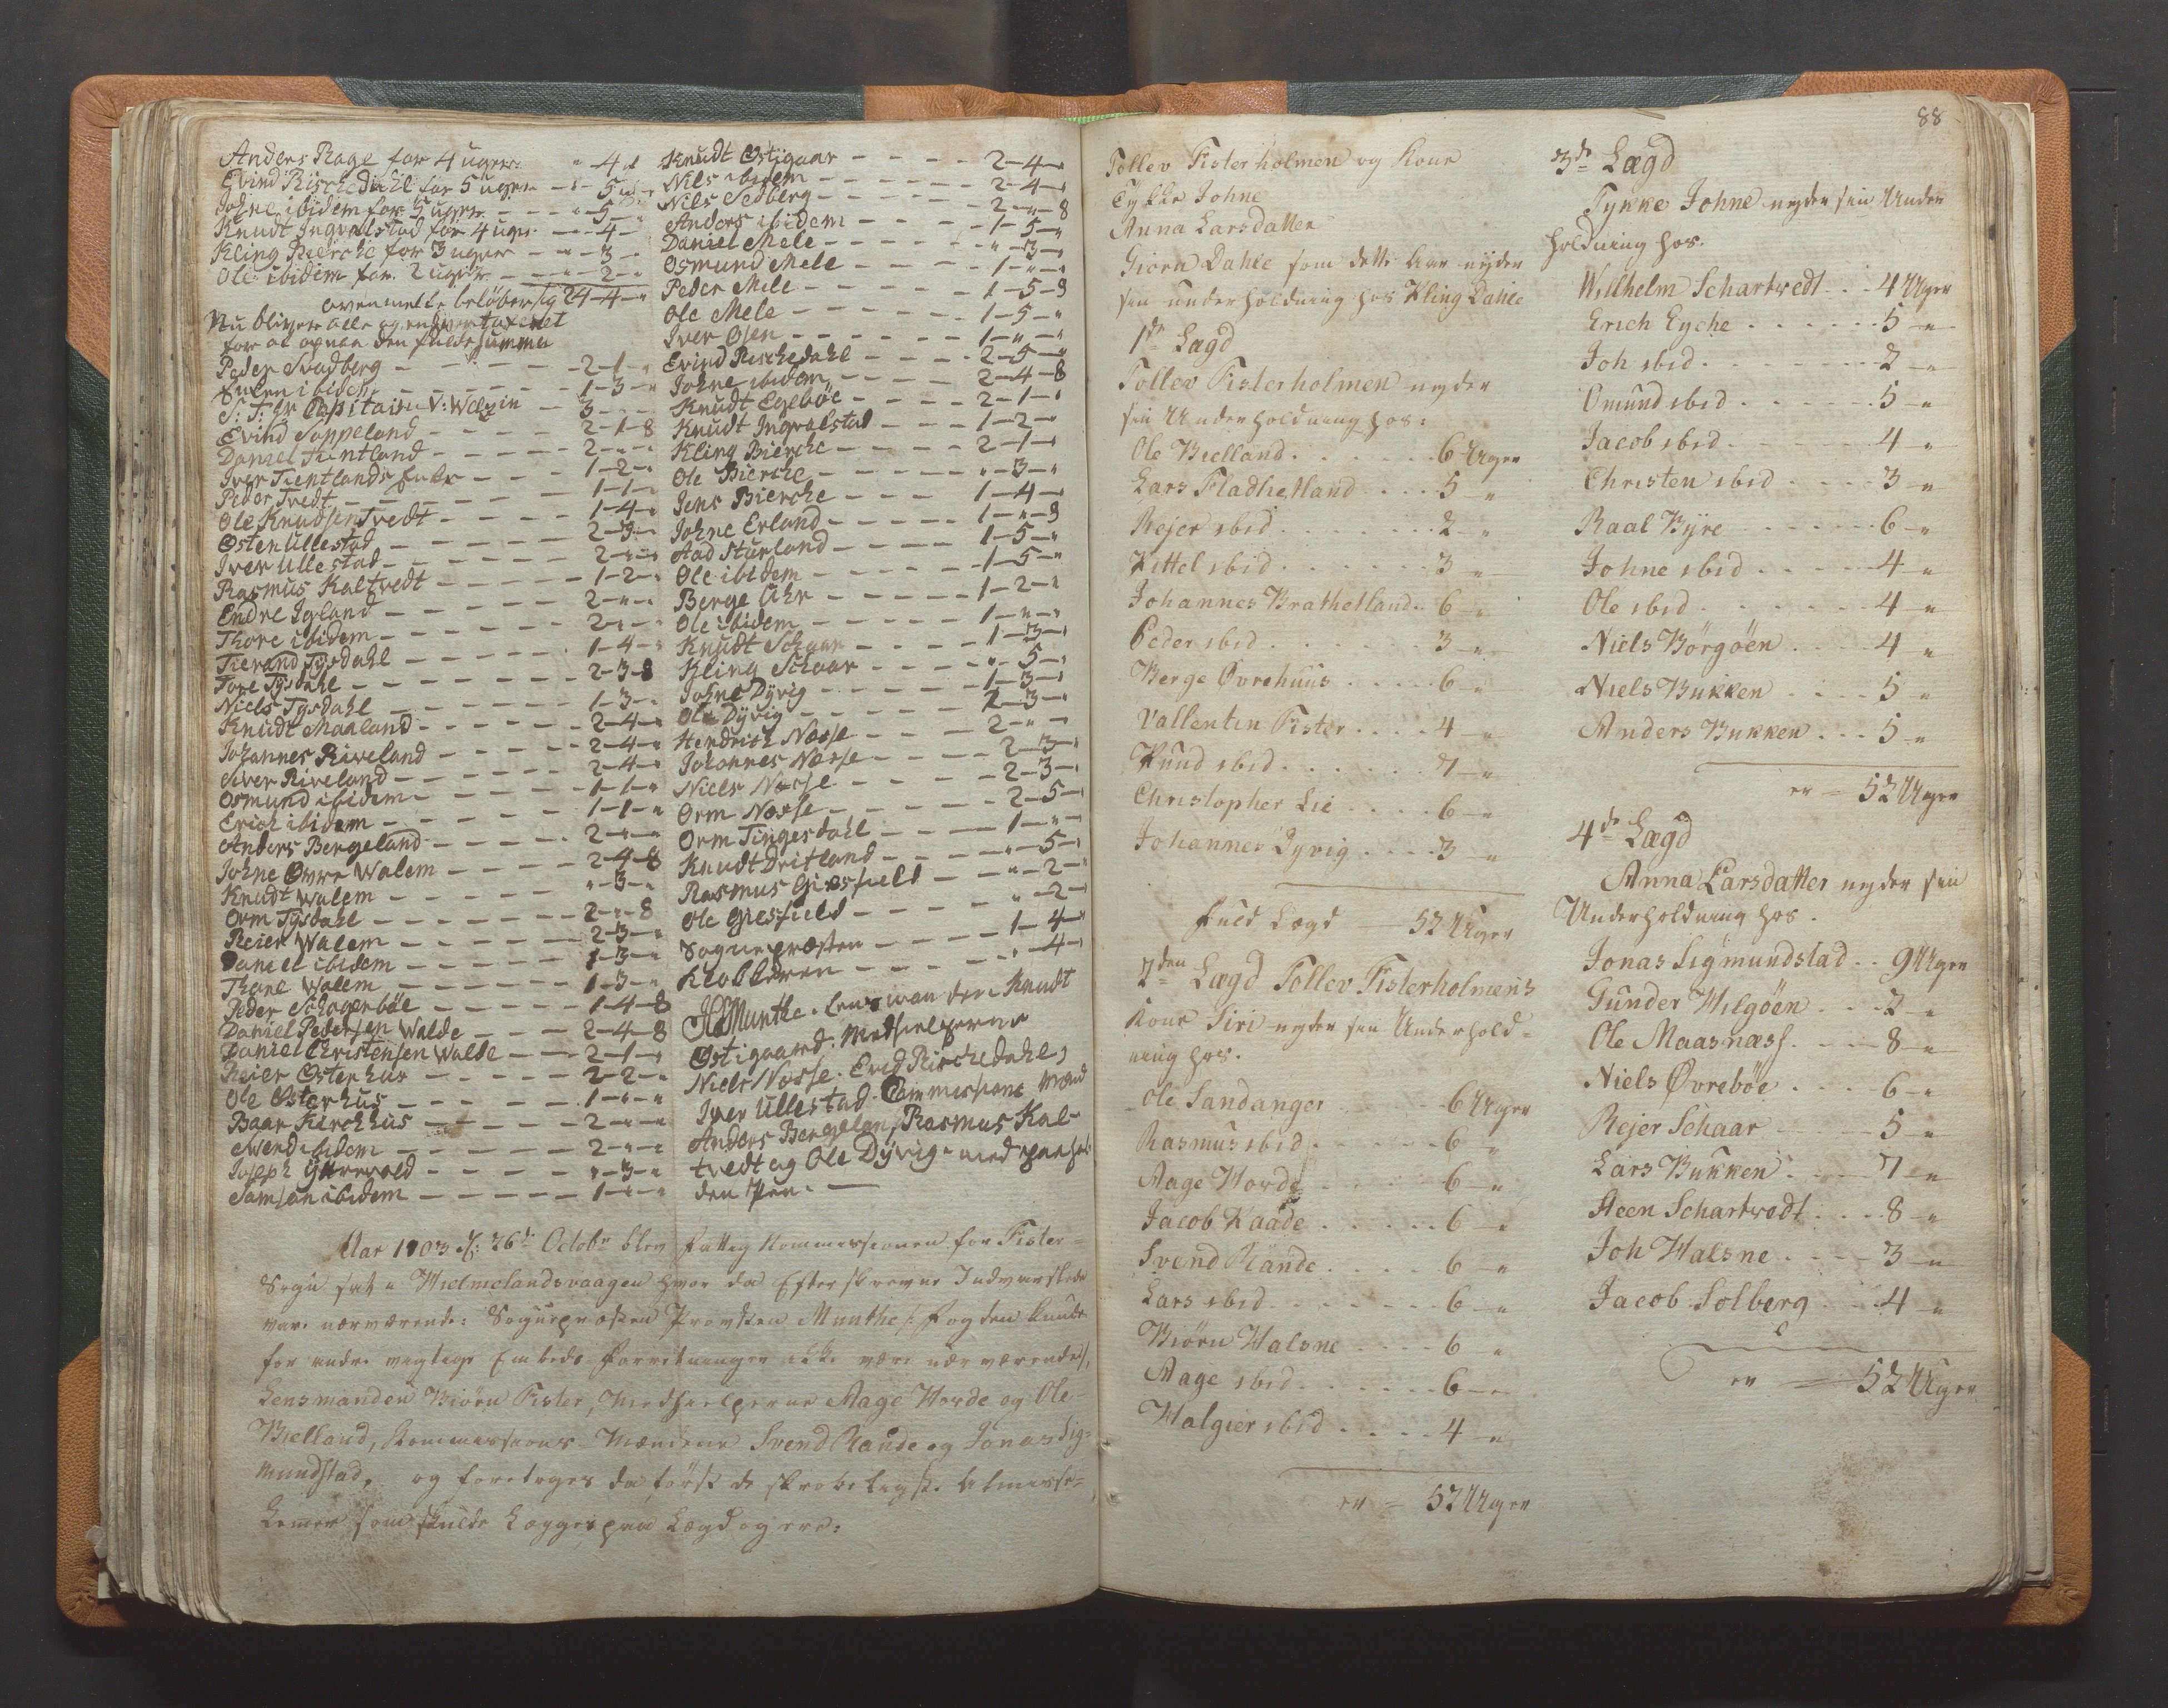 Anders Rage for 4 uger " - 4 -
Evind Rischedahl for 5 uger - " - 5 -
Johne ibidem for 5 uger - - - " - 5 - "
Knudt Ingvalstad for 4 uger - " - 4 -
Kling Bierche for 3 uger - " - 3 -
Ole ibidem for 2 uger - - - " - 2 - "
ovenmelte beløber sig 24 - 4 - "
Nu bliver alle og enhver taxeret
for at opnaa den fulde summa
Peder Svadberg - - - - - 2 - 1 - "
Enken ibidem - - - - - 1 - 3 - "
S: T: Hr Capitain V: Welzin - 3 - - -
Evind Soppeland - - - - 2 - 1 - 8
Daniel Tientland - - - - 2 - " - "
Iver Tientlands Enke - - 1 - 2 - "
Peder Tvedt - - - - - - 1 - 1 - "
Ole Knudsen Tvedt - - - - 1 - 4 - "
Østen Ullestad - - - - - 2 - 3 - "
Iver Ullestad - - - - - - 2 - " - "
Rasmus Kaltvedt - - - - 1 - 2 - "
Endre Igland - - - - - 2 - " - "
Thore ibidem - - - - - - 2 - " - "
Tierand Tysdahl - - - - 1 - 4 - "
Tore Tysdahl - - - - - - 2 - 3 - 8
Niels Tysdahl - - - - - 1 - 3 - "
Knudt Maaland - - - - - 2 - 4 - "
Johannes Riveland - - - - 2 - 4 - "
Siver Riveland - - - - - 2 - 4 - "
Osmund ibidem - - - - - 1 - 1 - "
Erich ibidem - - - - - - 1 - 1 - "
Anders Bergeland - - - - 2 - " - "
Johne Øvre Walem - - - - 2 - 4 - 8
Knudt Walem - - - - - " - 3 - "
Orm Tysdahl - - - - - - 2 - " - 8
Reier Walem - - - - - - 2 - 3 - "
Daniel ibidem - - - - - 1 - 3 - "
Thore Walem - - - - - - 1 - 3 - "
Peder Schogenbøe - - - - 1 - 4 - 8
Daniel Pedersen Walde - - - 2 - 4 - 8
Daniel Christensen Walde - - 2 - 1 - "
Reier Østerhus - - - - - 2 - 2 - "
Ole Østerhus - - - - - - 1 - " - "
Baar Kirchhus - - - - - 2 - " - "
Svend ibidem - - - - - 2 - " - "
Joseph Ytrevold - - - - - " - 3 - "
Samson ibidem - - - - - 1 - " - "
Knudt Østigaar - - - - 2 - 4 - "
Nils ibidem - - - - - - 2 - 4 - "
Nils Sedberg - - - - - 2 - " - 8
Anders ibidem - - - - - 1 - 5 - "
Daniel Mele - - - - - - " - 3 - "
Osmund Mele - - - - - 1 - " - "
Peder Mele - - - - - - 1 - 5 - 8
Ole Mele - - - - - - 1 - 5 - "
Iver Osen - - - - - - 1 - " - "
Evind Rischedahl - - - - 2 - 5 - "
Johne ibidem - - - - - 2 - 4 - 8
Knudt Egebøe - - - - - 2 - 1 - "
Knudt Ingvalstad - - - 1 - 2 - "
Kling Bierche - - - - - 2 - 1 - "
Ole Bierche - - - - - " - 3 - "
Jens Bierche - - - - 1 - 4 - "
Johne Erland - - - - - 1 - " - 8
Aad Sturland - - - - - 1 - 5 - "
Ole ibidem - - - - - - 1 - 5 - "
Berge Ahr - - - - - 1 - 2 - "
Ole ibidem - - - - - - 1 - " - "
Knudt Schaar - - - - - 1 - 3 - "
Kling Schaar - - - - - " - 5 - "
Johne Dyvig - - - - - 1 - 3 - "
Ole Dyvig - - - - - - 2 - 3 - "
Hendrich Næsse - - - - 2 - " - "
Johannes Næsse - - - - 2 - 3 - "
Niels Næsse - - - - - 2 - 3 - "
Orm Næsse - - - - - - 2 - 5 - "
Orm Tingesdahl - - - - 1 - " - "
Knudt Dritland - - - - " - 5 - "
Rasmus Giesfield - - - " - 2 - "
Ole Giesfield - - - - - " - 2 - "
Sognepræsten - - - - - 1 - 4 - "
Klokkeren - - - - - - " - 4 - "
Munthe. Lensmanden Knudt
Østigaard: Medhielperne
Niels Næsse. Evid Rischedahl,
Iver Ullestad. Commissions Mænd
Anders Bergelan, Rasmus Kal-
tvedt og Ole Dyvig med paaholden
den Pen. -
Aar 1803 d: 26de Octobr blev Fattig Kommissionen for Fister-
Sogn sat i Hielmelandsvaagen hvor da Efterskrevne Indvaanere
var nærværende: Sognepræsten Provsten Munthe /: Fogden kunde
for andre vigtige Embeds Forretninger ikke være nærværende :/,
Lensmanden Biørn Fister, Medhielperne Aage Horde og Ole
Bielland, Kommissions Mændene Svend Rande og Jonas Sig-
mundstad, og foretoges da først de skrøbeligste Almisse-
Lemer som skulde Lægges paa Lægd og ere:
88
Tollev Fisterholmen og Kone
Tykke Johne
Anna Larsdatter
Giøen Dahle som dette Aar nyder
sin underholdning hos Kling Dahle
1ste Lægd
Tollev Fisterholmen nyder
sin Underholdning hos:
Ole Bielland . . . . . . 6 Uger
Lars Fladhetland . . . 5 - "
Rejer ibid . . . . . . 2 - "
Kittel ibid . . . . . . 3 - "
Johannes Brathetland . . 6 - "
Peder ibid . . . . . . . 3 - "
Berge Øvrehuus . . . . . 6 - "
Vallentin Fister . . . . 4 - "
Knud ibid . . . . . . . 7 - "
Christopher Lie . . . . 6 - "
Johannes Dyvig . . . . 3 - "
Fuld Lægd — 52 Uger
2den Lægd Tollev Fisterholmens
Kone Siri nyder sin Underhold-
ning hos.
Ole Sandanger . . . . 6 Uger
Rasmus ibid . . . . . . 6 - "
Aage Horde . . . . . . 6 - "
Jacob Kaade . . . . . . 6 - "
Svend Rande . . . . . 6 - "
Lars ibid . . . . . . . 6 - "
Biørn Halsne . . . . 6 - "
Aage ibid . . . . . . . 6 - "
Halgier ibid . . . . . 4 - "
er = 52 Uger
3de Lægd
Tykke Johne nyder sin Under
holdning hos.
Willhelm Schartvedt . . . 4 Uger
Erich Eyche . . . . . . 5 - "
Joh ibid . . . . . . . 2 - "
Omund ibid . . . . . . 5 - "
Jacob ibid . . . . . . 4 - "
Christen ibid . . . . 3 - "
Raal Byre . . . . . . 6 - "
Johne ibid . . . . . . 4 - "
Ole ibid . . . . . . . 4 - "
Niels Børgøen . . . . 4 - "
Niels Bukken . . . . 5 - "
Anders Bukken . . . 5 - "
er = 52 Uger
4de Lægd
Anna Larsdatter nyder sin
Underholdning hos.
Jonas Sigmundstad . . 9 Uger
Gunder Hilgøen . . . 2 - "
Ole Maasnæss . . . . 8 - "
Niels Øvrebøe . . . 6 - "
Rejer Schaar . . . . 5 - "
Lars Bukken . . . . 7 - "
Steen Schartvedt . . . 8 - "
Joh Halsne . . . . . 3 - "
Jacob Solberg . . . 4 - "
er = 52 Uger